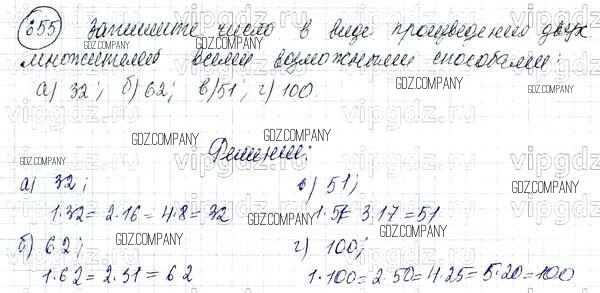 655 Запишите число в виде произведения двух
множителей всеми возможными способами:
а) 32; б) 62; в) 51; г) 100.
Решение:
а) 32;
1·32 = 2·16 = 4·8 = 32
б) 62;
1·62 = 2·31 = 62
в) 51;
1·51= 3·17 = 51
г) 100;
1·100 = 2·50 = 4·25 = 5·20 = 100
GDZ.COMPANY
vipgdz.ru